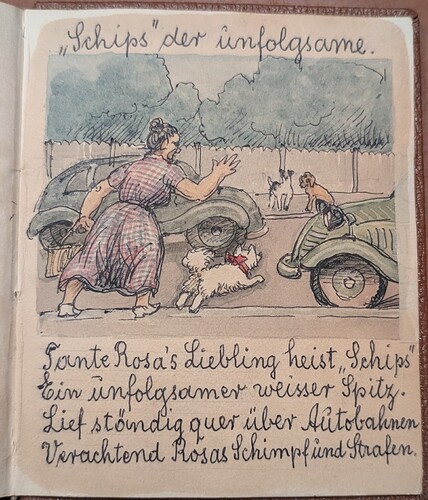 „Schips" der ünfolgsame.
Tante Rosa's Liebling heist „Schips"
Ein ünfolgsamer weisser Spitz.
Lief ständig quer über Aütobahnen
Verachtend Rosas Schimpf und Strafen.